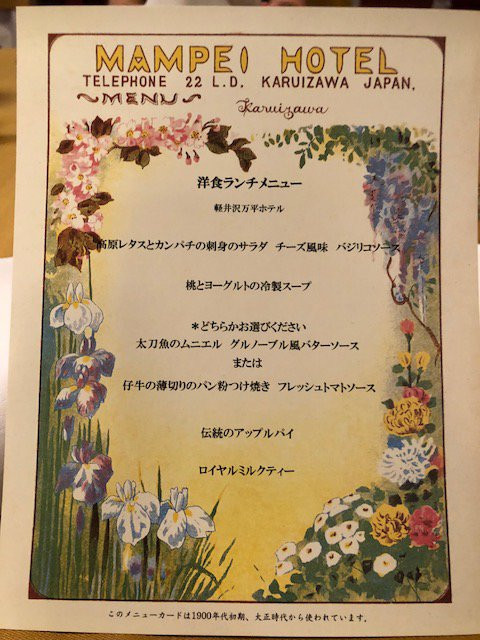 MAMPEI HOTEL
TELEPHONE 22 L.D. KARUIZAWA JAPAN.
～MENU～
Karuizawa
洋食ランチメニュー
軽井沢万平ホテル
高原レタスとカンパチの刺身のサラダ チーズ風味 バジリコソース
桃とヨーグルトの冷製スープ
＊どちらかお選びください
太刀魚のムニエル グルノーブル風バターソース
または
仔牛の薄切りのパン粉つけ焼き フレッシュトマトソース
伝統のアップルパイ
ロイヤルミルクティー
このメニューカードは1900年代初期、大正時代から使われています。